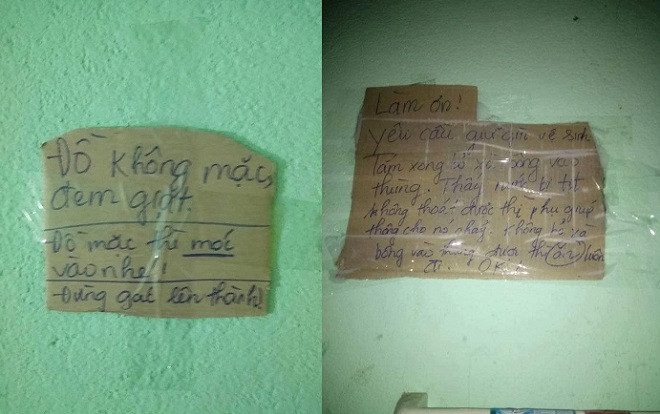 Đồ không mặc,
đem giặt.
Đồ mặc thì móc
vào nhe!
Đừng gát lên thành
Làm ơn!
yêu cầu giữ gìn vệ sinh
Tắm xong bỏ xà bông vào
thùng. Thấy nước bị tắt
không thoát được thì phụ giúp
thông cho nó chảy. Không bỏ xà
bông vào thùng được thì (ăn) luôn
đi. OK!